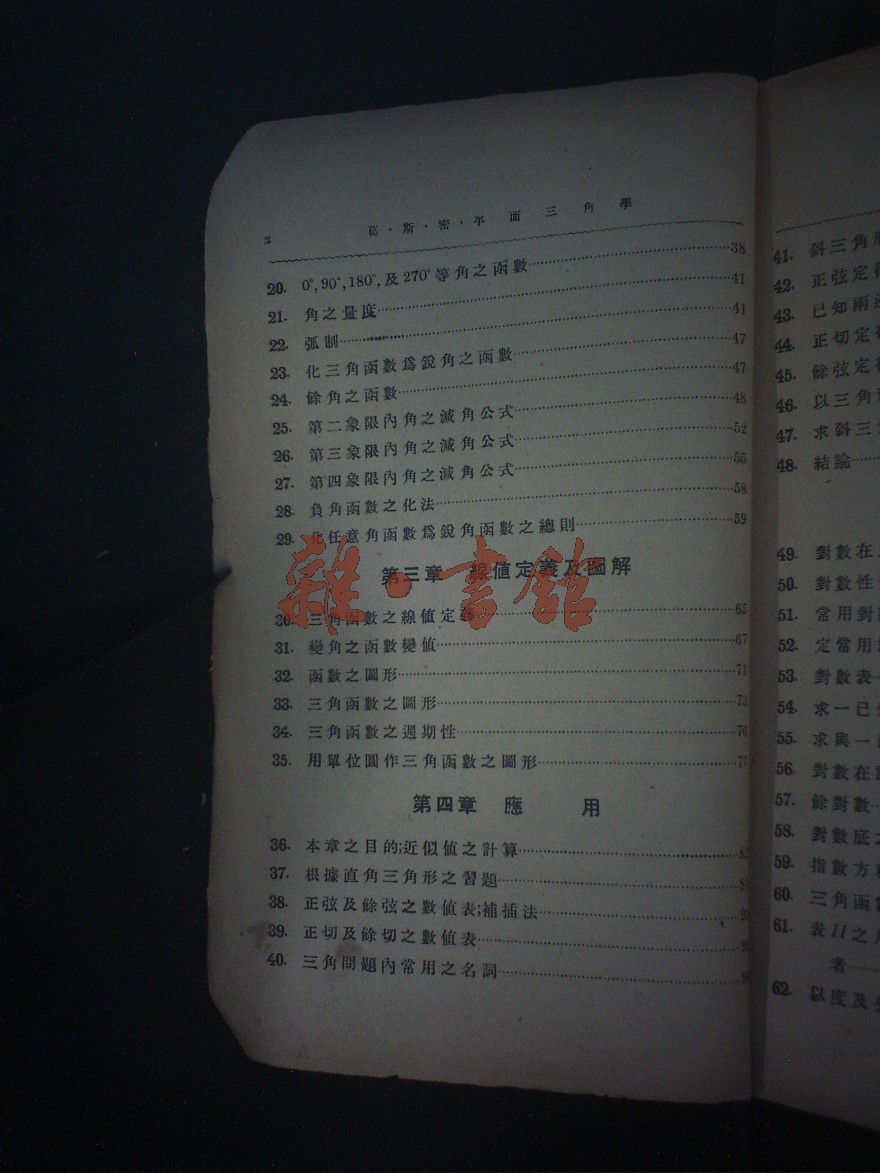 2 葛·斯·密·平面三角學
20. 0°, 90°, 180°, 及 270° 等角之函數 38
21. 角之量度 41
22. 弧制 41
23. 化三角函數爲銳角之函數 47
24. 餘角之函數 47
25. 第二象限內角之減角公式 48
26. 第三象限內角之減角公式 52
27. 第四象限內角之減角公式 55
28. 負角函數之化法 58
29. 化任意角函數爲銳角函數之總則 59
第三章 線值定義及圖解
30. 三角函數之線值定義 65
31. 變角之函數變值 67
32. 函數之圖形 71
33. 三角函數之圖形 73
34. 三角函數之週期性 76
35. 用單位圓作三角函數之圖形 77
第四章 應用
36. 本章之目的;近似值之計算
37. 根據直角三角形之習題
38. 正弦及餘弦之數値表;補插法
39. 正切及餘切之數値表
40. 三角問題內常用之名詞
雜·書館
41. 斜三角
42. 正弦定
43. 已知兩
44. 正切定
45. 餘弦定
46. 以三角
47. 求斜三
48. 結論
49. 對數在
50. 對數性
51. 常用對
52. 定常用
53. 對數表
54. 求一已
55. 求與一
56. 對數在
57. 餘對數
58. 對數底
59. 指數方
60. 三角函
61. 表II之
者
62. 以度及